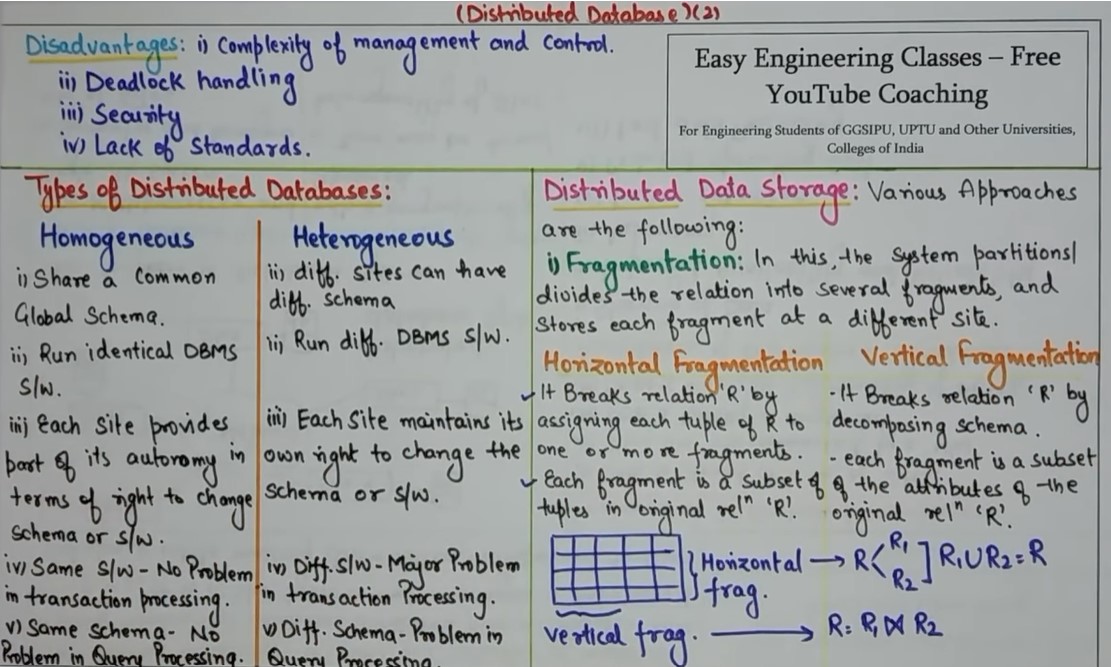 (Distributed Database)(2)
Disadvantages: i) Complexity of management and Control.
ii) Deadlock handling
iii) Security
iv) Lack of Standards.
Easy Engineering Classes – Free
YouTube Coaching
For Engineering Students of GGSIPU, UPTU and Other Universities,
Colleges of India
Types of Distributed Databases:
Homogeneous
i) Share a Common
Global Schema.
ii) Run identical DBMS
S/W.
iii) Each Site provides
part of its autonomy in
terms of right to change
Schema or S/W.
iv) Same S/W - No Problem
in transaction processing.
v) Same schema - No
Problem in Query Processing.
Heterogeneous
ii) diff. sites can have
diff. schema
ii) Run diff. DBMS S/W.
iii) Each Site maintains its
own right to change the
Schema or S/W.
iv) Diff. S/W - Major Problem
in transaction Processing.
v) Diff. Schema - Problem in
Query Processing.
Distributed Data Storage: Various Approaches
are the following:
i) Fragmentation: In this, the System partitions/
divides the relation into several fragments, and
Stores each fragment at a different site.
Horizontal Fragmentation
✓ It Breaks relation 'R' by
assigning each tuple of R to
one or more fragments.
✓ Each fragment is a subset of
tuples in original relⁿ 'R'.
Vertical Fragmentation
- It Breaks relation 'R' by
decomposing schema.
- each fragment is a subset
of the attributes of the
original relⁿ 'R'.
} Horizontal frag. → R < R₁ R₂ ] R₁ ∪ R₂ = R
Vertical frag. → R = R₁ ⋈ R₂